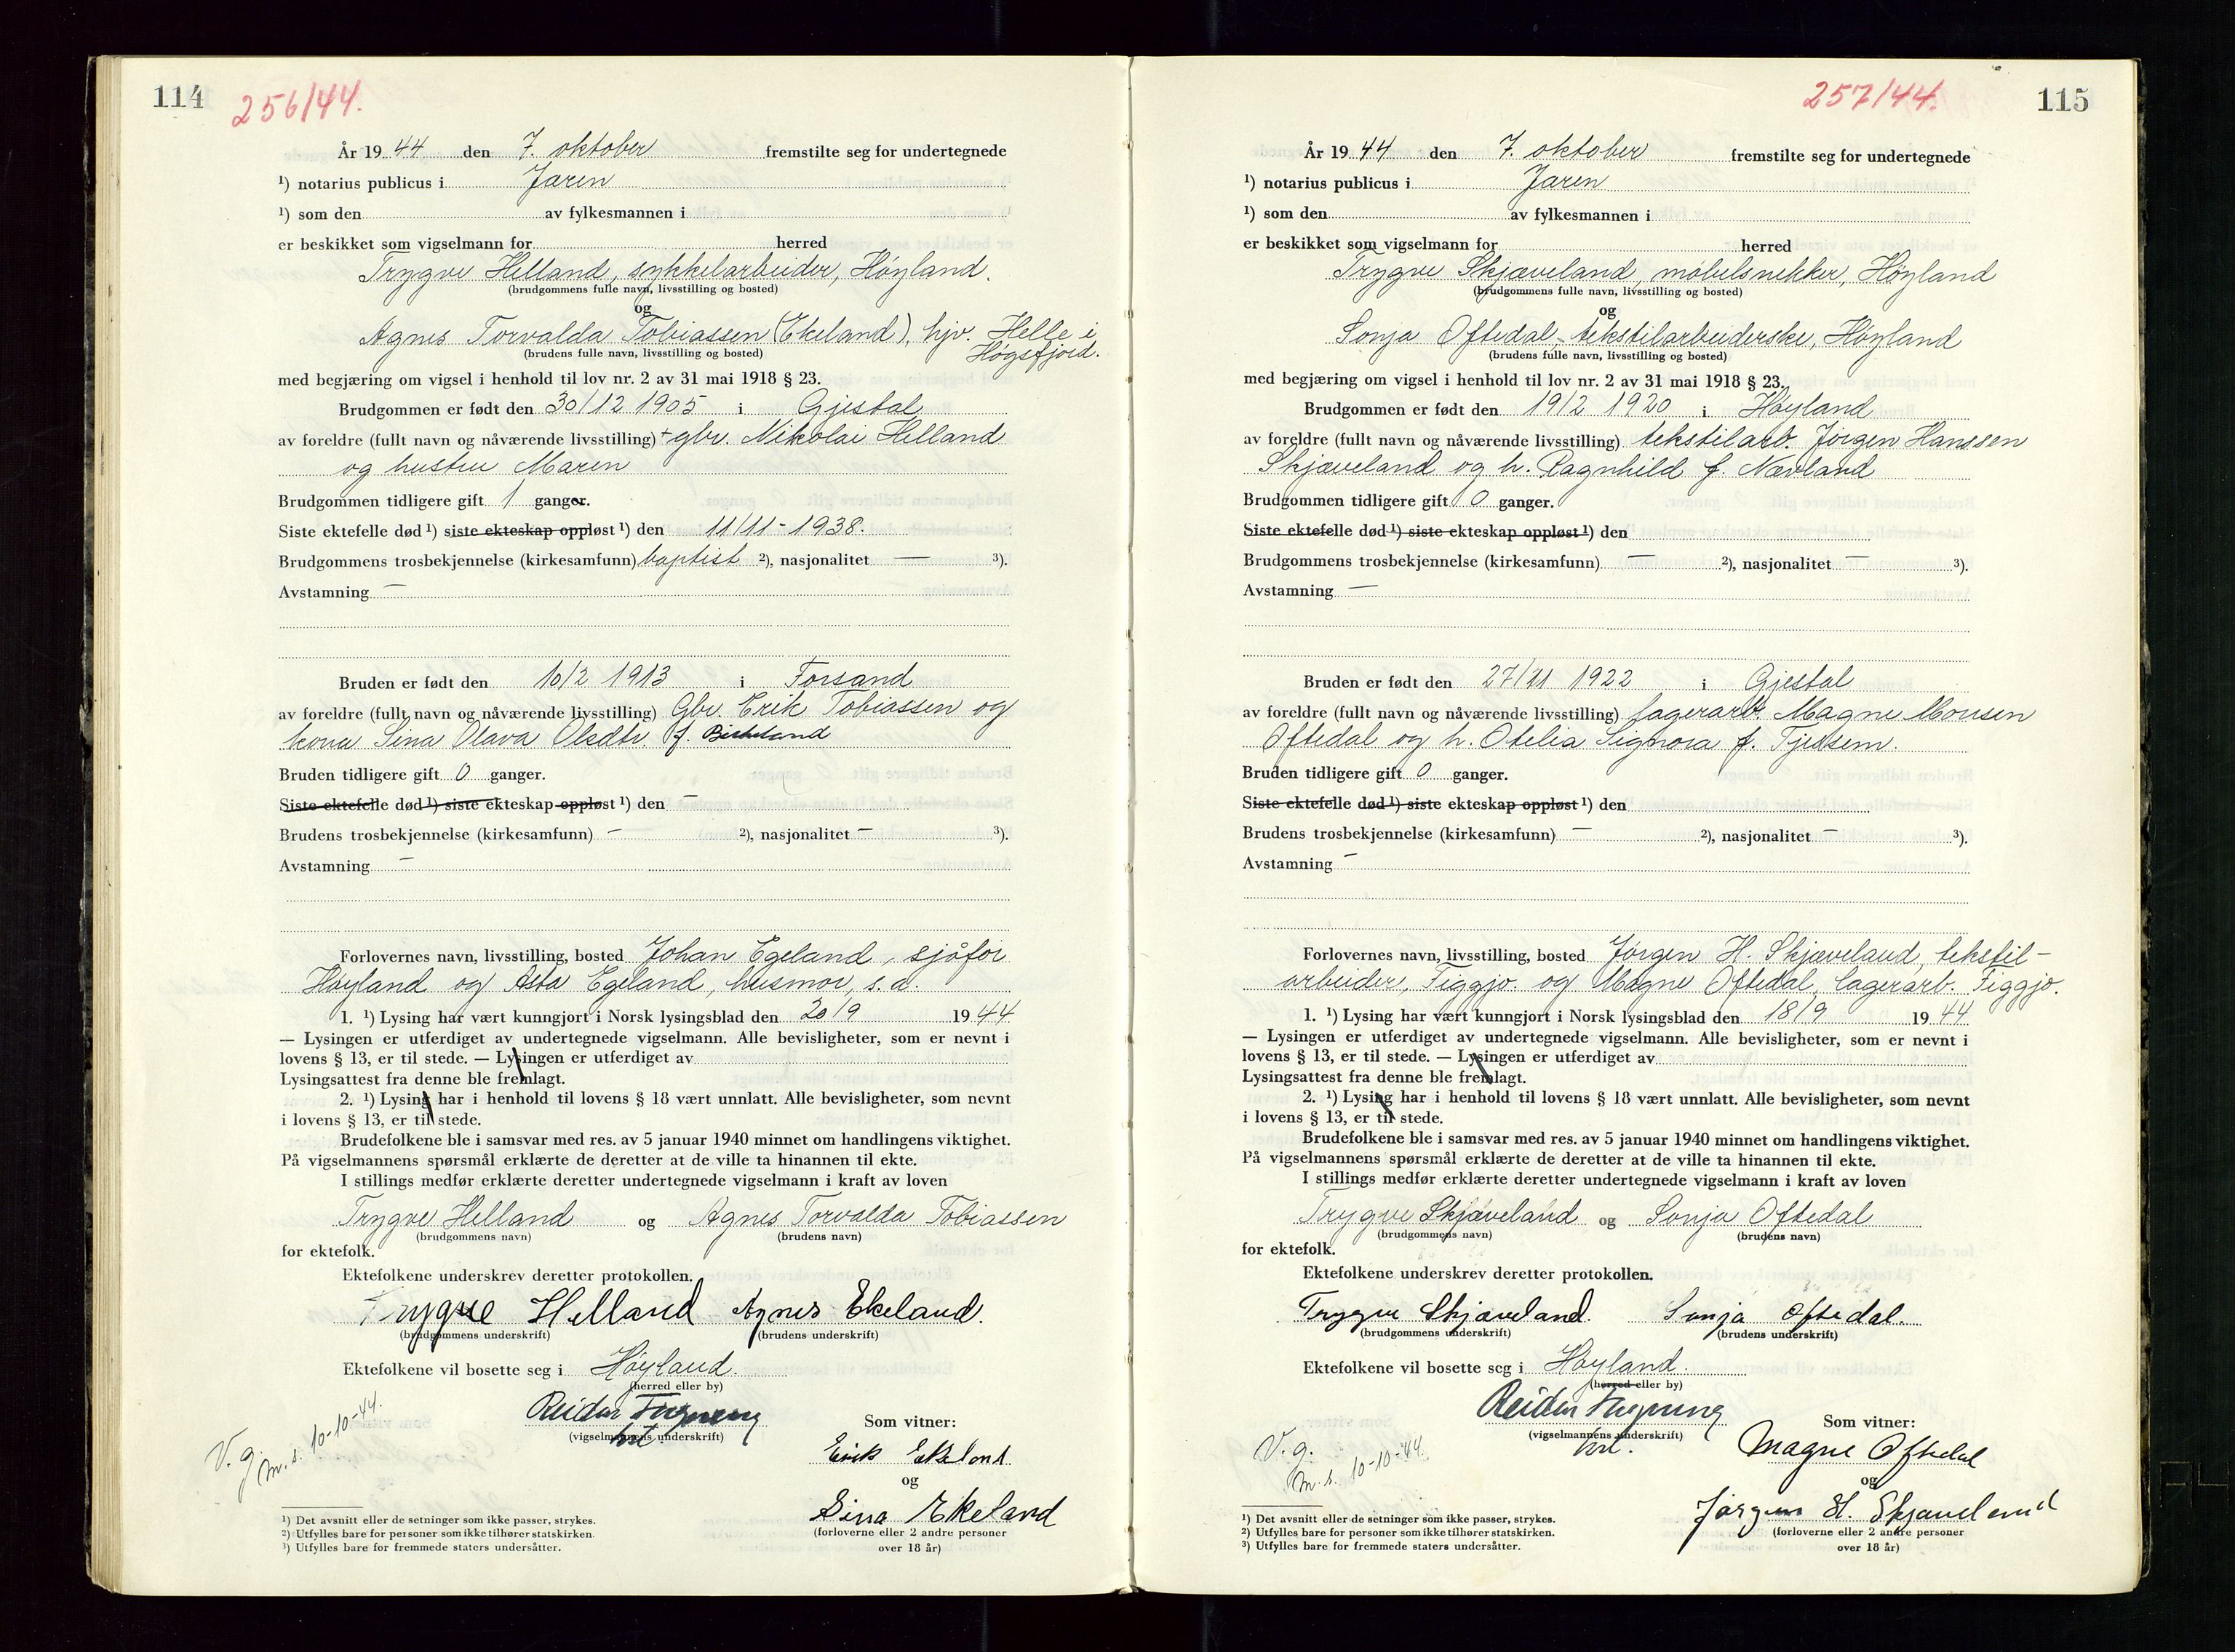 114
256/44.
År 1944 den 7. oktober fremstilte seg for undertegnede
¹) notarius publicus i Jæren
¹) som den av fylkesmannen i
er beskikket som vigselmann for herred
Trygve Helland, sykkelarbeider, Høyland.
(brudgommens fulle navn, livsstilling og bosted)
og
Agnes Torvalda Tobiassen (Ekeland), hjv. Helle i
Høgsfjord.
(brudens fulle navn, livsstilling og bosted)
med begjæring om vigsel i henhold til lov nr. 2 av 31 mai 1918 § 23.
Brudgommen er født den 30/12 1905 i Gjestal
av foreldre (fullt navn og nåværende livsstilling) + gbr. Nikolai Helland
og hustru Maren
Brudgommen tidligere gift 1 ganger.
Siste ektefelle død ¹) siste ekteskap oppløst ¹) den 11/11-1938.
Brudgommens trosbekjennelse (kirkesamfunn) baptist ²), nasjonalitet — ³).
Avstamning —
Bruden er født den 10/2 1913 i Forsand
av foreldre (fullt navn og nåværende livsstilling) Gbr. Erik Tobiassen og
kona Sina Olava Olsdtr. f.
Bruden tidligere gift 0 ganger.
Siste ektefelle død ¹) siste ekteskap oppløst ¹) den —
Brudens trosbekjennelse (kirkesamfunn) — ²), nasjonalitet — ³).
Avstamning —
Forlovernes navn, livsstilling, bosted Johan Egeland, sjåfør
Høyland og Asta Egeland, husmor, s.a.
1. ¹) Lysing har vært kunngjort i Norsk lysingsblad den 20/9 1944
— Lysingen er utferdiget av undertegnede vigselmann. Alle bevisligheter, som er nevnt i
lovens § 13, er til stede. — Lysingen er utferdiget av
Lysingsattest fra denne ble fremlagt.
2. ¹) Lysing har i henhold til lovens § 18 vært unnlatt. Alle bevisligheter, som nevnt
i lovens § 13, er til stede.
Brudefolkene ble i samsvar med res. av 5 januar 1940 minnet om handlingens viktighet.
På vigselmannens spørsmål erklærte de deretter at de ville ta hinannen til ekte.
I stillings medfør erklærte deretter undertegnede vigselmann i kraft av loven
Trygve Helland og Agnes Torvalda Tobiassen
(brudgommens navn) (brudens navn)
for ektefolk.
Ektefolkene underskrev deretter protokollen.
Trygve Helland Agnes Ekeland.
(brudgommens underskrift) (brudens underskrift)
Ektefolkene vil bosette seg i Høyland.
(herred eller by)
Reidar
(vigselmannens underskrift)
V. g.
m. s. 10-10-44.
Som vitner:
Erik Ekeland
og
Sina Ekeland
(forloverne eller 2 andre personer
over 18 år)
¹) Det avsnitt eller de setninger som ikke passer, strykes.
²) Utfylles bare for personer som ikke tilhører statskirken.
³) Utfylles bare for fremmede staters undersåtter.
257/44.
115
År 1944 den 7. oktober fremstilte seg for undertegnede
¹) notarius publicus i Jæren
¹) som den av fylkesmannen i
er beskikket som vigselmann for herred
Trygve Skjæveland, møbelsnekker, Høyland
(brudgommens fulle navn, livsstilling og bosted)
og
Sonja Oftedal, tekstilarbeiderske, Høyland
(brudens fulle navn, livsstilling og bosted)
med begjæring om vigsel i henhold til lov nr. 2 av 31 mai 1918 § 23.
Brudgommen er født den 19/2 1920 i Høyland
av foreldre (fullt navn og nåværende livsstilling) tekstilarb. Jørgen Hanssen
Skjæveland og h. Ragnhild f. Nævland
Brudgommen tidligere gift 0 ganger.
Siste ektefelle død ¹) siste ekteskap oppløst ¹) den
Brudgommens trosbekjennelse (kirkesamfunn) — ²), nasjonalitet — ³).
Avstamning —
Bruden er født den 27/11 1922 i Gjestal
av foreldre (fullt navn og nåværende livsstilling) lagerarb. Magne Monsen
Oftedal og h. Otelia Signora f. Tjessem.
Bruden tidligere gift 0 ganger.
Siste ektefelle død ¹) siste ekteskap oppløst ¹) den
Brudens trosbekjennelse (kirkesamfunn) — ²), nasjonalitet — ³).
Avstamning —
Forlovernes navn, livsstilling, bosted Jørgen H. Skjæveland, tekstil-
arbeider, Figgjo. og Magne Oftedal, lagerarb. Figgjo.
1. ¹) Lysing har vært kunngjort i Norsk lysingsblad den 18/9 1944
— Lysingen er utferdiget av undertegnede vigselmann. Alle bevisligheter, som er nevnt i
lovens § 13, er til stede. — Lysingen er utferdiget av
Lysingsattest fra denne ble fremlagt.
2. ¹) Lysing har i henhold til lovens § 18 vært unnlatt. Alle bevisligheter, som nevnt
i lovens § 13, er til stede.
Brudefolkene ble i samsvar med res. av 5 januar 1940 minnet om handlingens viktighet.
På vigselmannens spørsmål erklærte de deretter at de ville ta hinannen til ekte.
I stillings medfør erklærte deretter undertegnede vigselmann i kraft av loven
Trygve Skjæveland og Sonja Oftedal
(brudgommens navn) (brudens navn)
for ektefolk.
Ektefolkene underskrev deretter protokollen.
Trygve Skjæveland. Sonja Oftedal.
(brudgommens underskrift) (brudens underskrift)
Ektefolkene vil bosette seg i Høyland.
(herred eller by)
Reidar
(vigselmannens underskrift)
V. g.
m. s. 10-10-44
Som vitner:
Magne Oftedal
og
Jørgen H. Skjæveland
(forloverne eller 2 andre personer
over 18 år)
¹) Det avsnitt eller de setninger som ikke passer, strykes.
²) Utfylles bare for personer som ikke tilhører statskirken.
³) Utfylles bare for fremmede staters undersåtter.